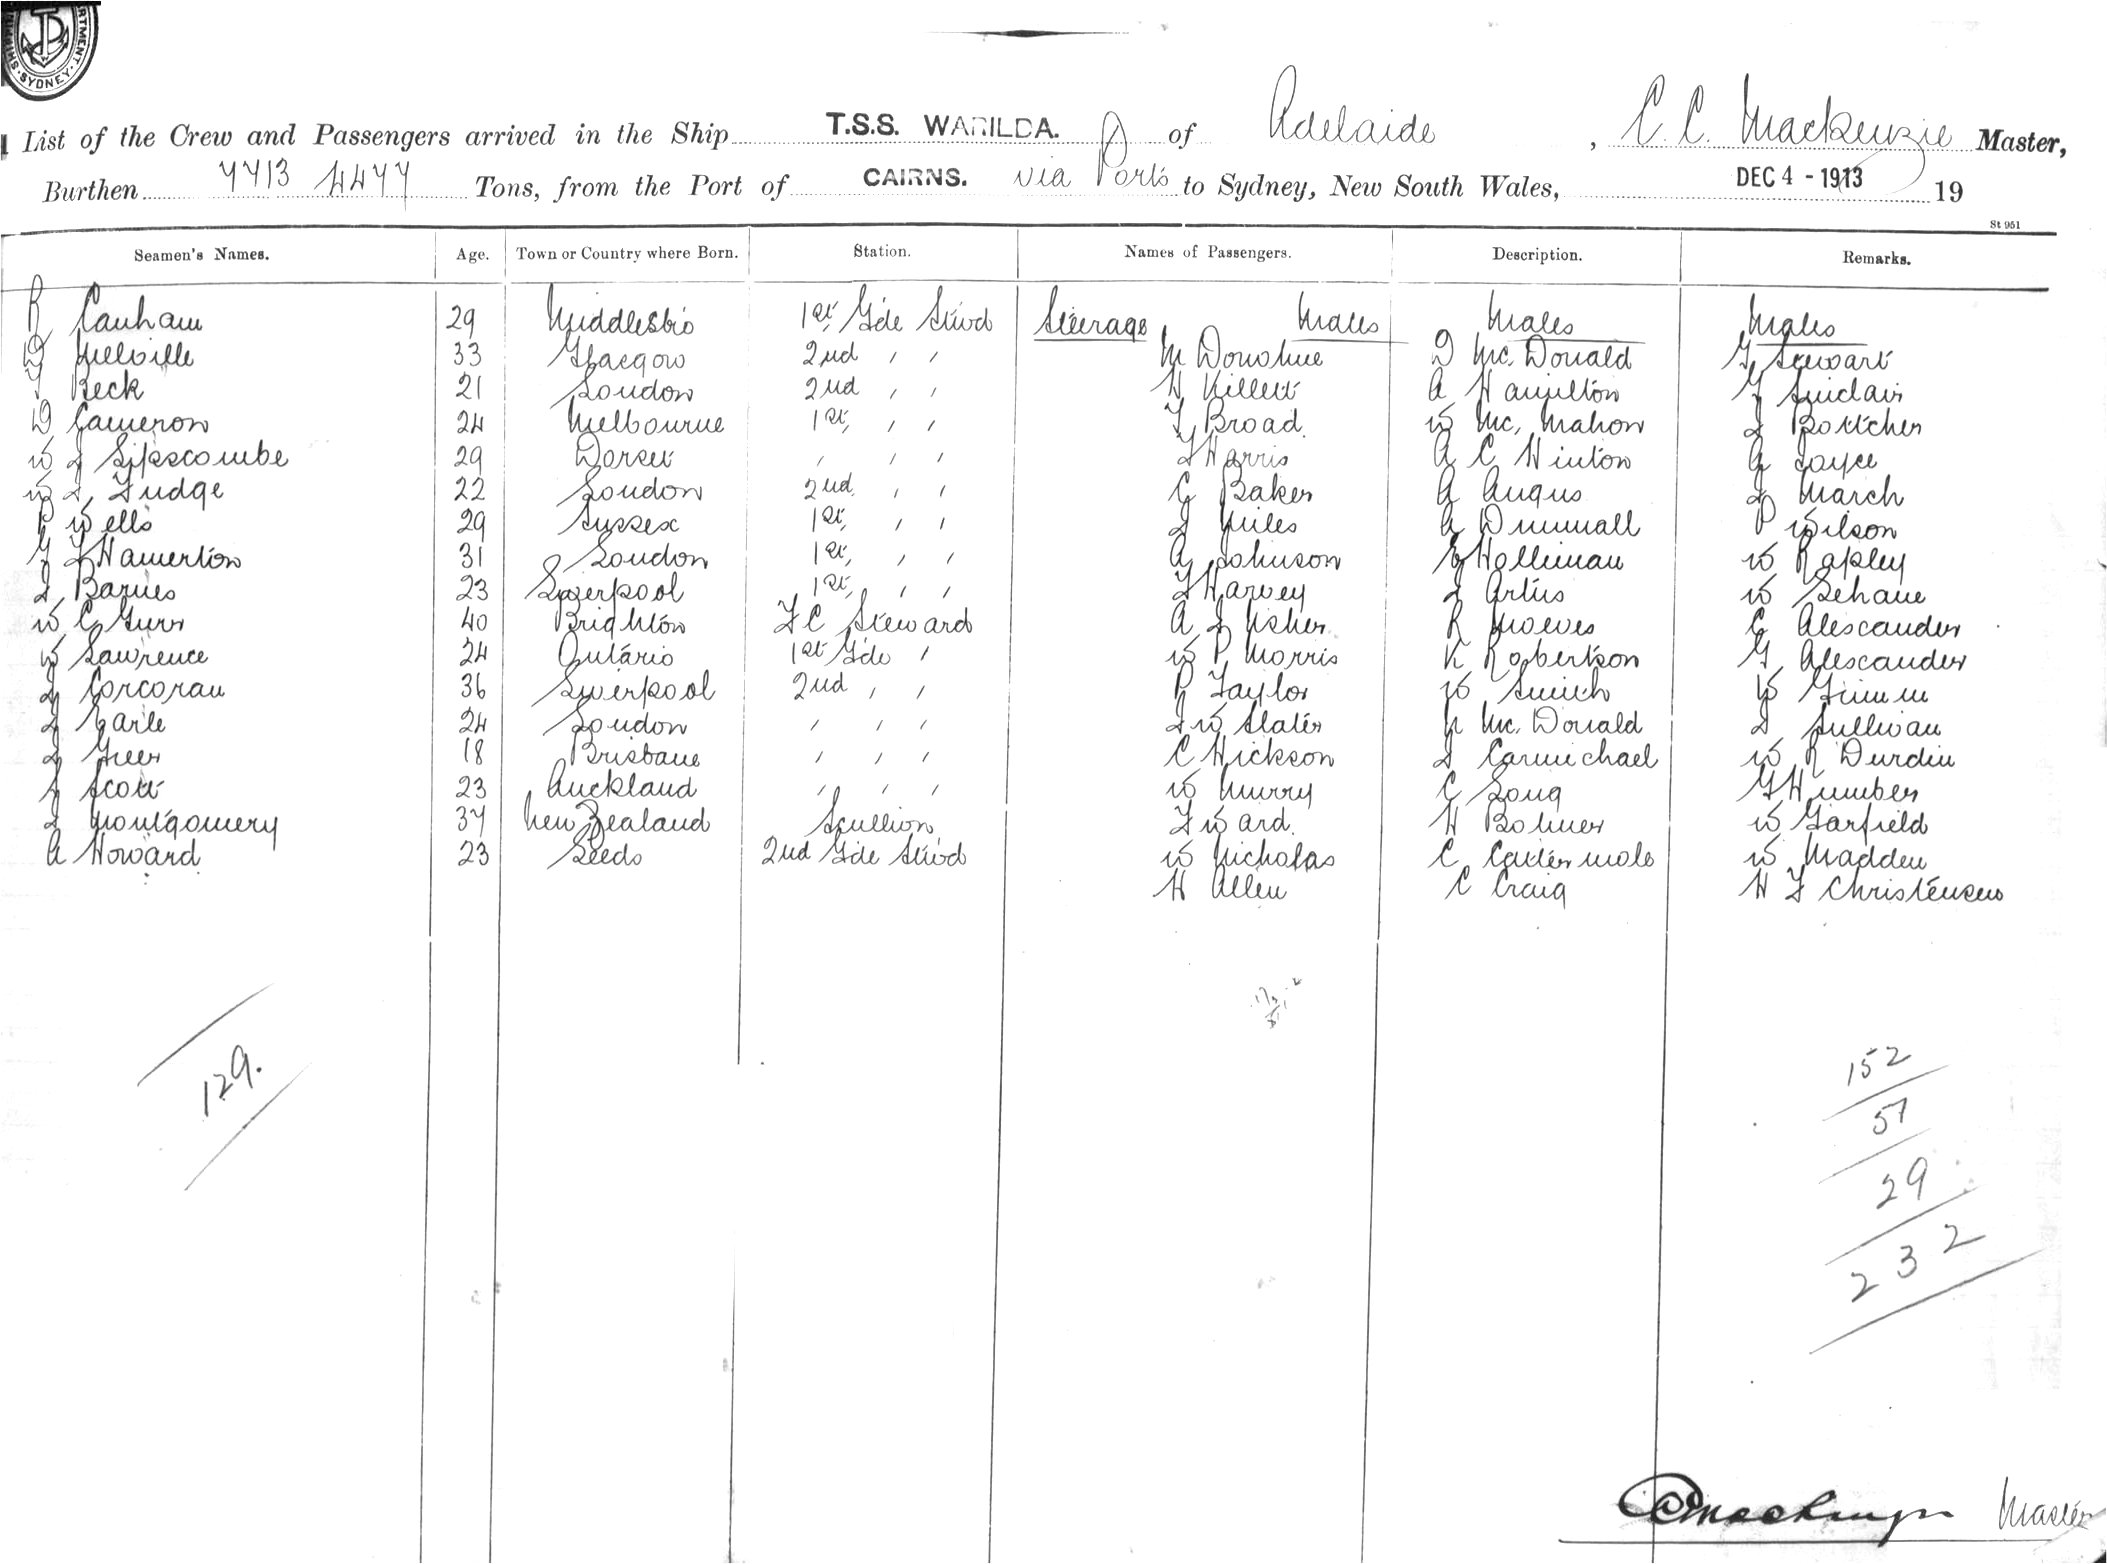 SYDNEY
List of the Crew and Passengers arrived in the Ship T.S.S. WARILDA. of Adelaide, C. C. Mackenzie Master,
Burthen 7713 4477 Tons, from the Port of CAIRNS. via Ports to Sydney, New South Wales, DEC 4 - 1913 19
St 951
Seamen's Names. Age. Town or Country where Born. Station. Names of Passengers. Description. Remarks.
R Canham 29 Middlesbro 1st Gde Stwd Steerage Males Males Males
Melville 33 Glasgow 2nd , , M Donohue D Mc. Donald G Stewart
Beck 21 London 2nd , , H Killett A Hamilton G Sinclair
D Cameron 24 Melbourne 1st, , , F Broad. W Mc. Mahon J Bottcher
W J Lipscombe 29 Dorset , , , J Harris A C Hinton A Joyce
W J Fudge 22 London 2nd , , G Baker A Angus J March
P Wells 29 Sussex 1st, , , J Miles A Dummall P Wilson
G J Hamerton 31 London 1st, , , A Johnson E Holliman W Rapley
J Barnes 23 Liverpool 1st, , , F Harvey J Artis W Lehane
W C Gurr 40 Brighton F C Steward A J Usher R Moeves C Alexander
W Lawrence 24 Ontario 1st Gde , W P Morris K Robertson G Alexander
J Corcoran 36 Liverpool 2nd , , P Taylor W Smith W Grimm
J Earle 24 London , , , J W Slater N Mc. Donald D Sullivan
J Greer 18 Brisbane , , , C Hickson J Carmichael W R Durdin
J Scott 23 Auckland , , , W Murry C Long G Humber
J Montgomery 37 New Zealand Scullion F Ward. H Bohmer W Garfield
A Howard 23 Leeds 2nd Gde Stwd W Nicholas C Cattermole W Madden
H Allen C Craig H F Christensen
129.
152
51
29
232
C C Mackenzie Master